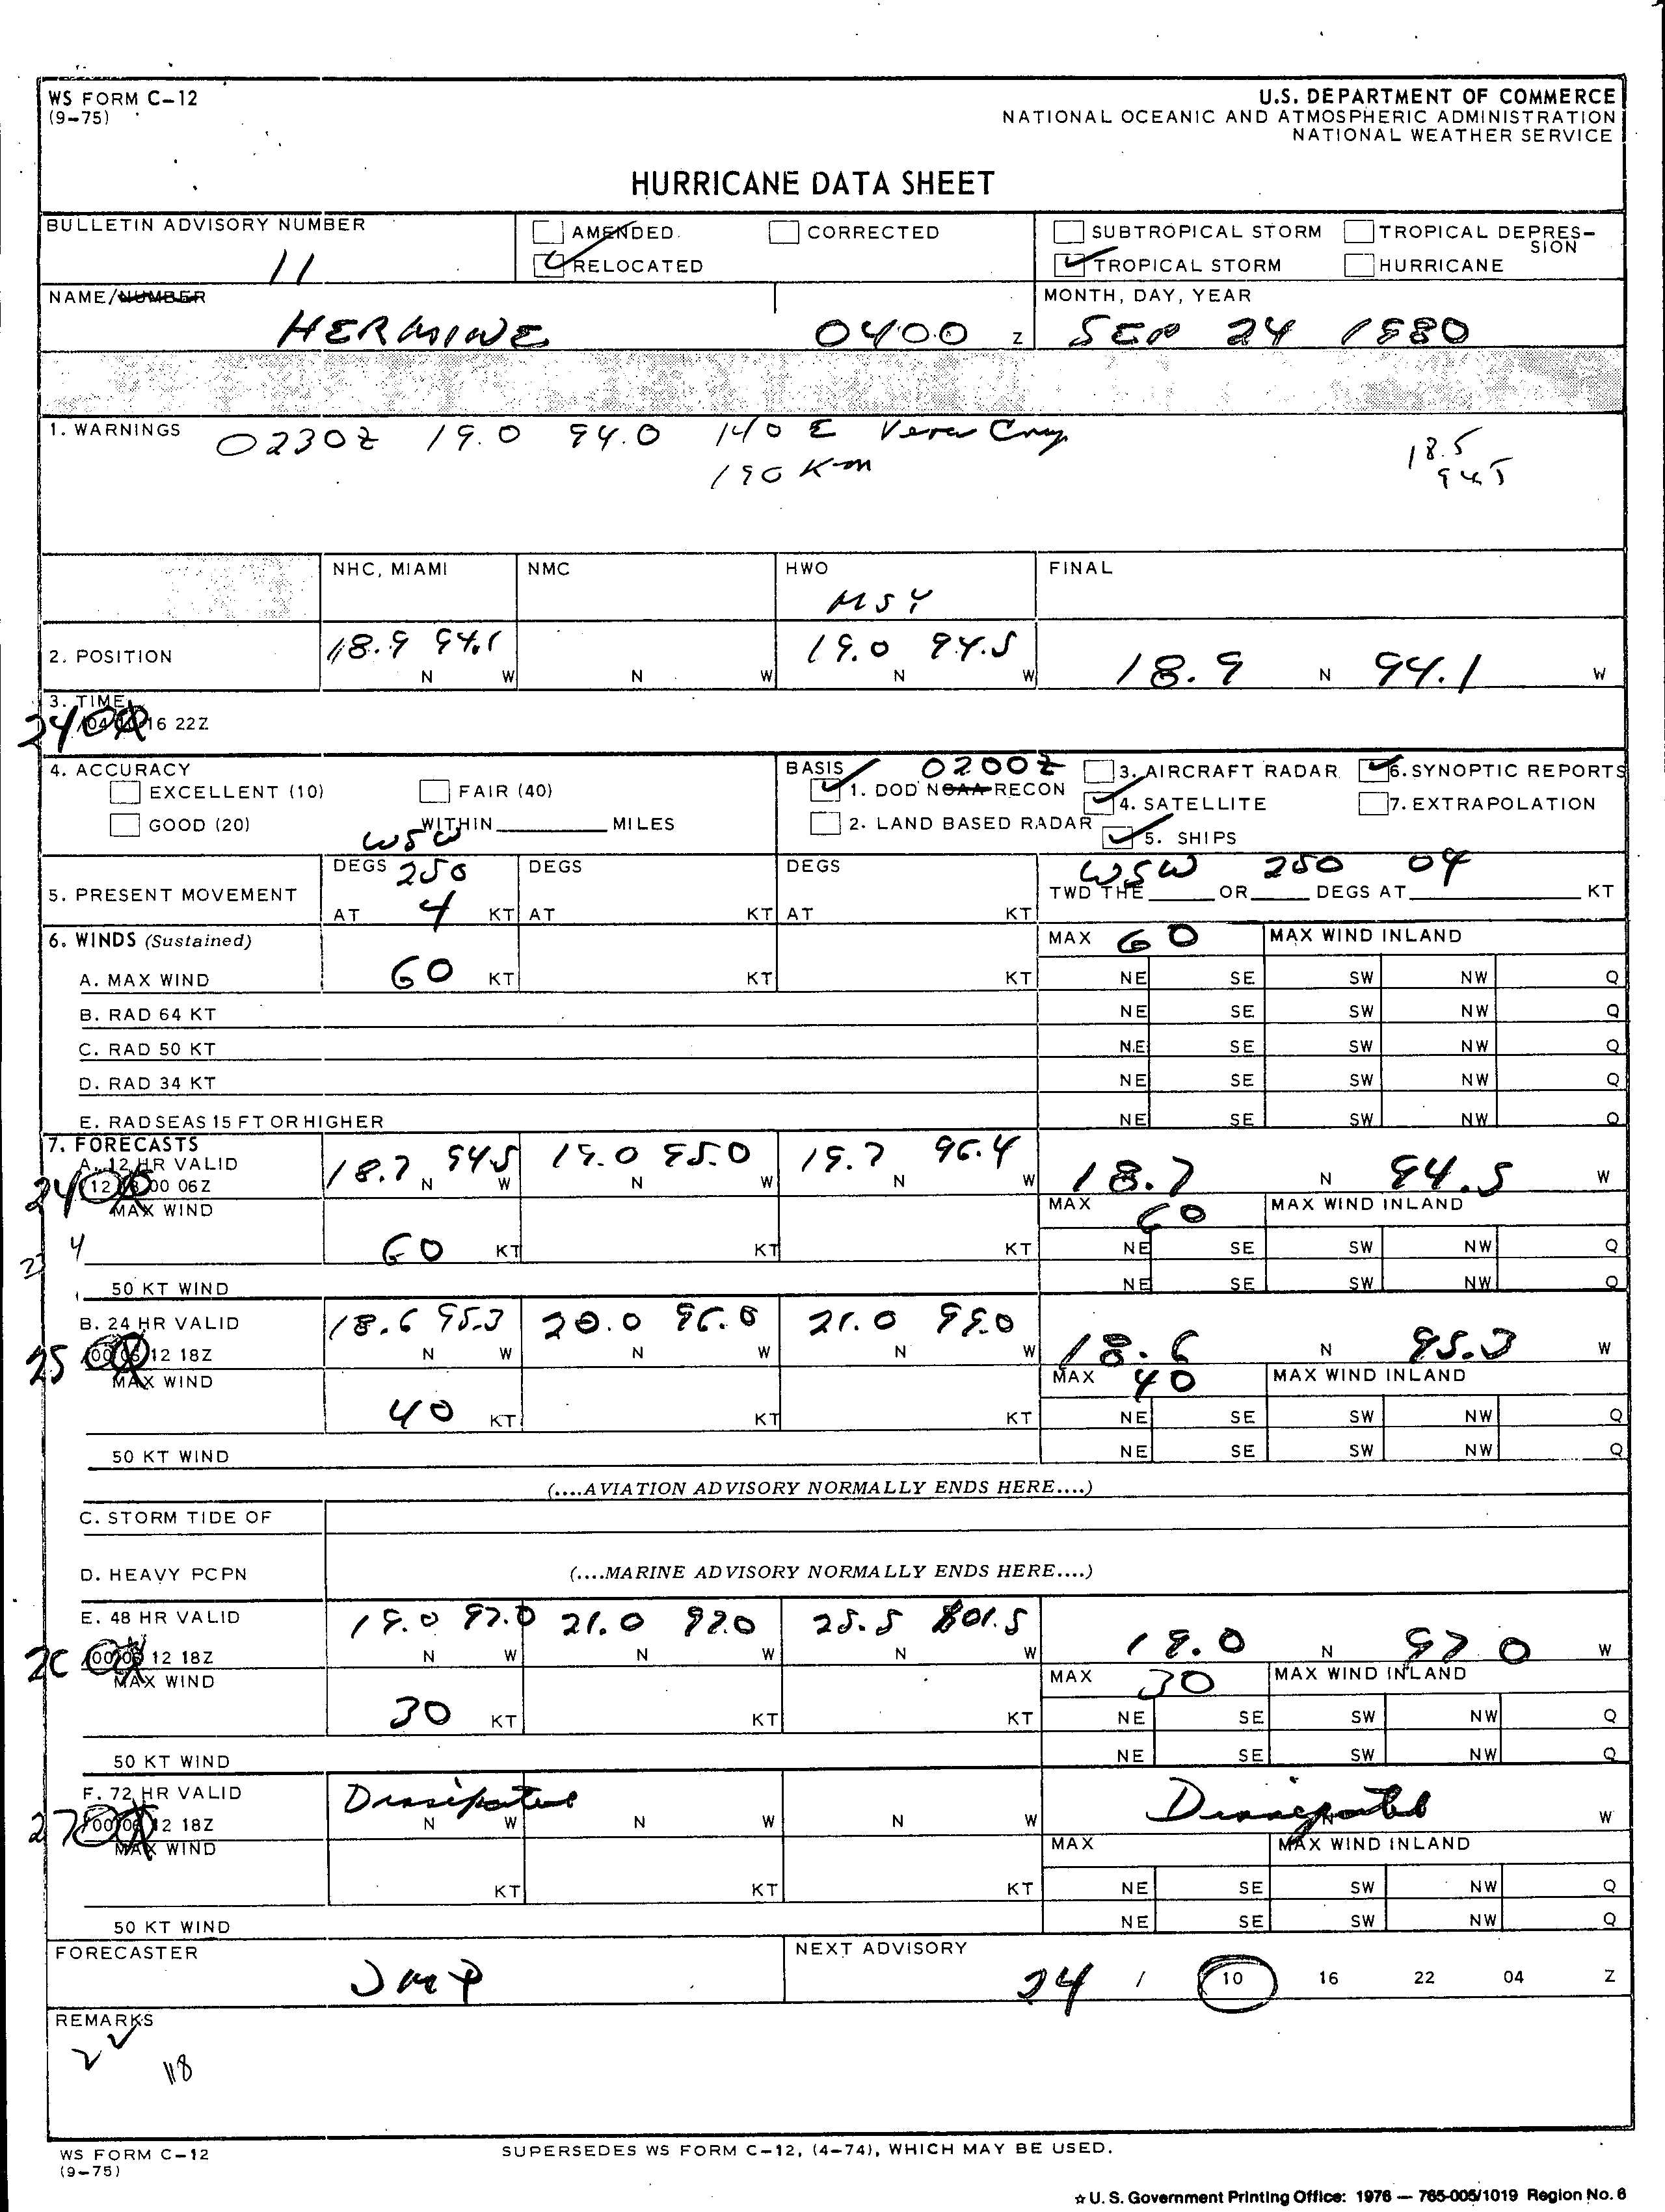 WS FORM C-12
(9-75)
U.S. DEPARTMENT OF COMMERCE
NATIONAL OCEANIC AND ATMOSPHERIC ADMINISTRATION
NATIONAL WEATHER SERVICE
HURRICANE DATA SHEET
BULLETIN ADVISORY NUMBER
11
AMENDED. CORRECTED
RELOCATED
SUBTROPICAL STORM TROPICAL DEPRESSION
TROPICAL STORM HURRICANE
NAME/NUMBER
HERMINE 0400 Z
MONTH, DAY, YEAR
SEP 24 1980
1. WARNINGS 0230Z 19.0 94.0 140 E Vera Cruz
190 Km
18.5
94.5
NHC, MIAMI NMC HWO FINAL
MSY
2. POSITION 18.9 94.1 19.0 94.5
N W N W N W 18.9 N 94.1 W
3. TIME
2400
04 10 16 22Z
4. ACCURACY
EXCELLENT (10) FAIR (40)
GOOD (20) WITHIN MILES
BASIS 0200Z 3. AIRCRAFT RADAR 6. SYNOPTIC REPORTS
1. DOD NOAA RECON 4. SATELLITE 7. EXTRAPOLATION
2. LAND BASED RADAR 5. SHIPS
WSW
5. PRESENT MOVEMENT DEGS 250 DEGS DEGS WSW 250 04
AT 4 KT AT KT AT KT TWD THE OR DEGS AT KT
6. WINDS (Sustained) MAX 60 MAX WIND INLAND
A. MAX WIND 60 KT KT KT NE SE SW NW Q
B. RAD 64 KT NE SE SW NW Q
C. RAD 50 KT NE SE SW NW Q
D. RAD 34 KT NE SE SW NW Q
E. RAD SEAS 15 FT OR HIGHER NE SE SW NW Q
7. FORECASTS
A. 12 HR VALID 18.7 94.5 19.0 95.0 19.7 96.4
00 06Z N W N W N W 18.7 N 94.5 W
MAX WIND MAX 60 MAX WIND INLAND
4 60 KT KT KT NE SE SW NW Q
50 KT WIND NE SE SW NW Q
B. 24 HR VALID 18.6 95.3 20.0 96.8 21.0 99.0
25 12 18Z N W N W N W 18.6 N 95.3 W
MAX WIND MAX 40 MAX WIND INLAND
40 KT KT KT NE SE SW NW Q
50 KT WIND NE SE SW NW Q
(....AVIATION ADVISORY NORMALLY ENDS HERE....)
C. STORM TIDE OF
D. HEAVY PCPN (....MARINE ADVISORY NORMALLY ENDS HERE....)
E. 48 HR VALID 19.0 97.0 21.0 99.0 25.5 101.5
12 18Z N W N W N W 19.0 N 97.0 W
MAX WIND MAX 30 MAX WIND INLAND
30 KT KT KT NE SE SW NW Q
50 KT WIND NE SE SW NW Q
F. 72 HR VALID Dissipated Dissipated
27 12 18Z N W N W N W W
MAX WIND MAX MAX WIND INLAND
KT KT KT NE SE SW NW Q
50 KT WIND NE SE SW NW Q
FORECASTER NEXT ADVISORY
JMP 24 / 10 16 22 04 Z
REMARKS
118
WS FORM C-12
(9-75)
SUPERSEDES WS FORM C-12, (4-74), WHICH MAY BE USED.
☆ U. S. Government Printing Office: 1976 — 765-005/1019 Region No. 6